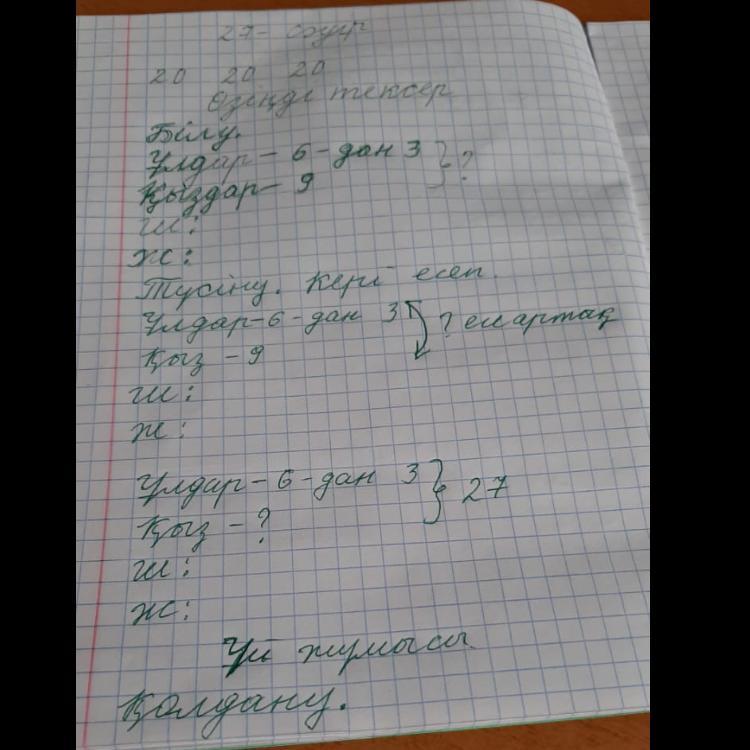 27- сәуір
20 20 20
Өзіңді тексер
Білу.
Ұлдар - 6 - дан 3 } ?
Қыздар - 9
Ш:
Ж:
Түсіну. Кері есеп.
Ұлдар - 6 - дан 3 ? еш артық
Қыз - 9
Ш:
Ж:
Ұлдар - 6 - дан 3 } 27
Қыз - ?
Ш:
Ж:
Үй жумысы
Қолдану.